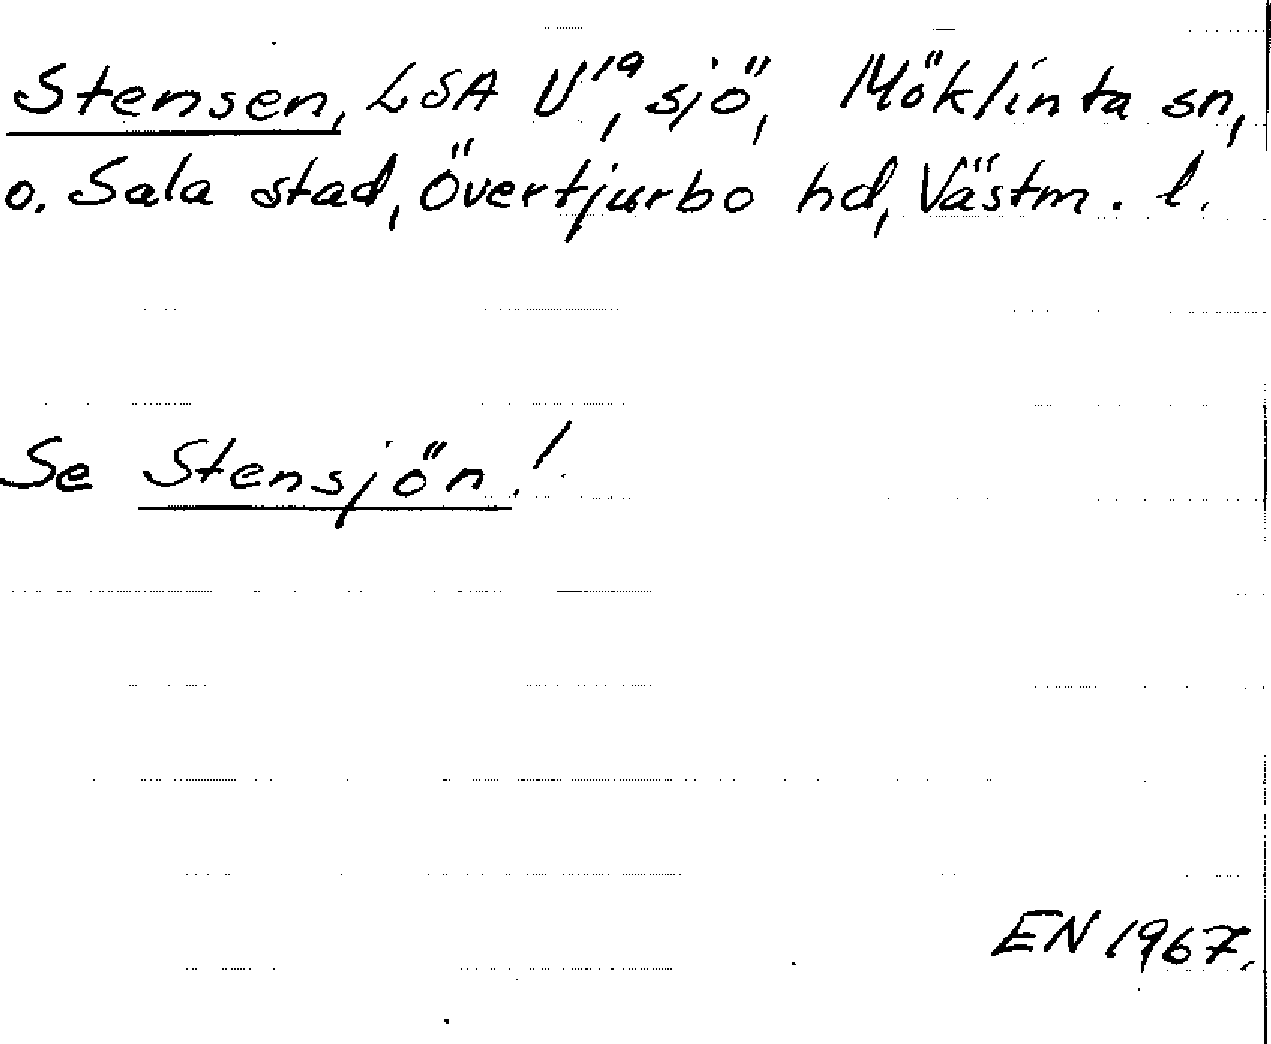 Stensen, LSA U¹⁹, sjö, Möklinta sn,
o. Sala stad, Övertjurbo hd, Västm. l.
Se Stensjön!
EN 1967.